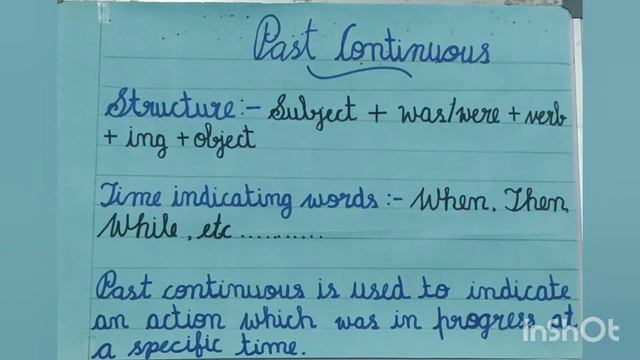 Past Continuous
Structure:- Subject + was/were + verb
+ ing + object
Time indicating words:- When, Then,
While, etc ..........
Past continuous is used to indicate
an action which was in progress at
a specific time.
InShOt